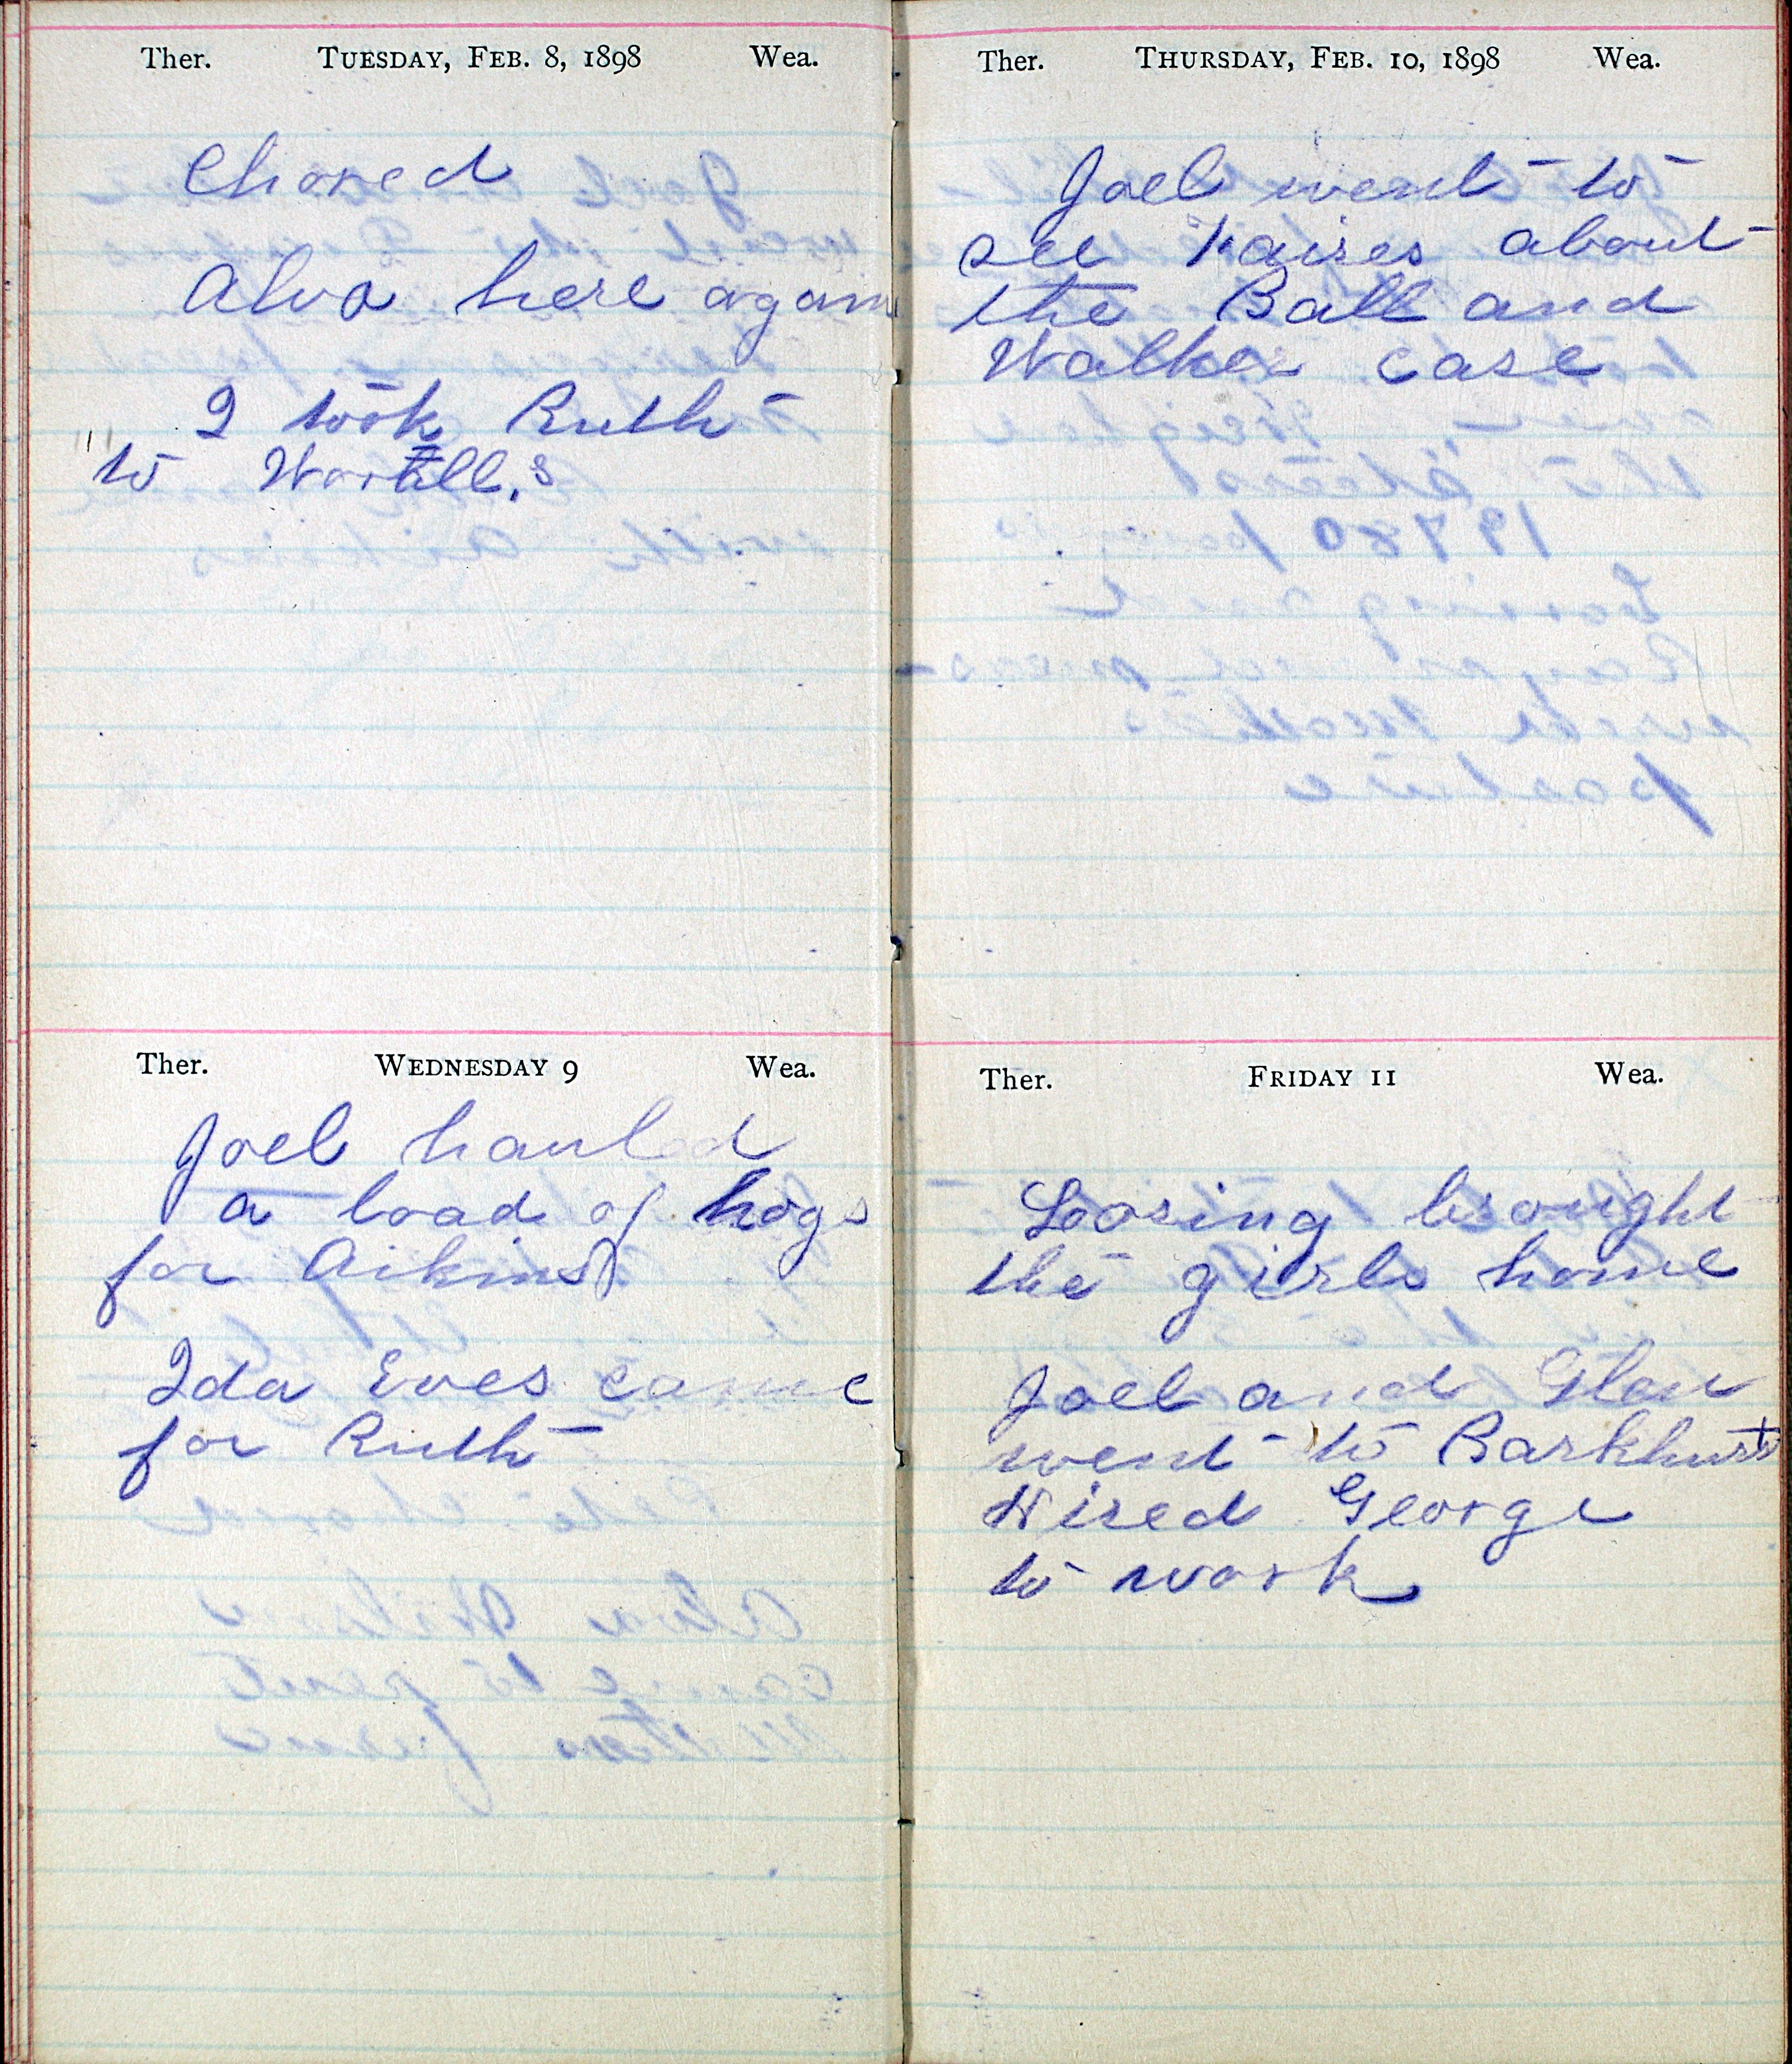 Ther. TUESDAY, FEB. 8, 1898 Wea.
Chored
Alva here again
I took Ruth
to Worall,s
Ther. WEDNESDAY 9 Wea.
Joel hauled
a load of hogs
for Aikins
Ida Eves came
for Ruth
Ther. THURSDAY, FEB. 10, 1898 Wea.
Joel went to
see about
the Ball and
Walker case
Ther. FRIDAY 11 Wea.
Looring brought
the girls home
Joel and Glen
went to Barkhurst
Hired George
to work